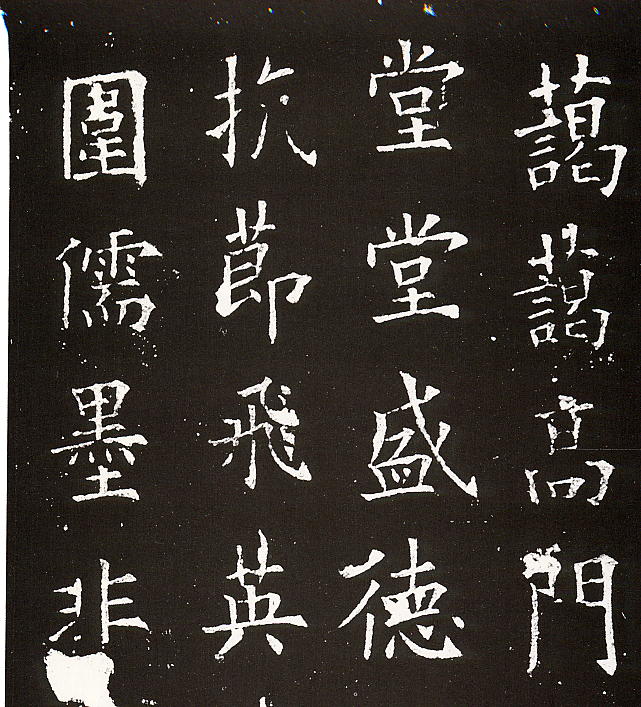 藹藹高門
堂堂盛德
抗節飛英
圍儒墨非